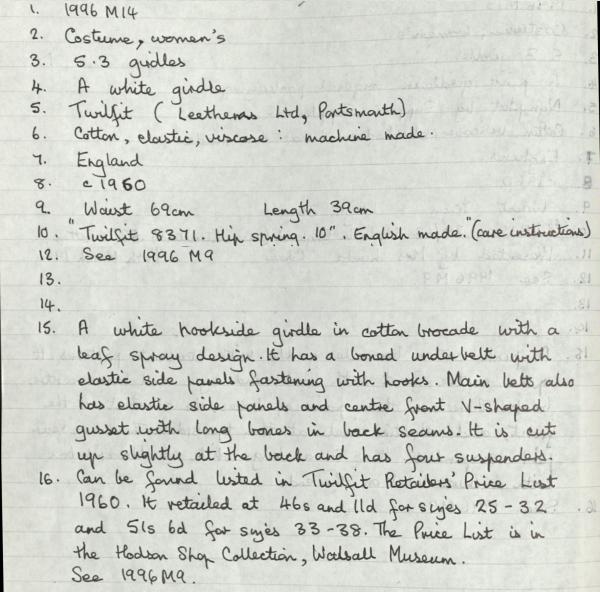 1. 1996 M14
2. Costume, women's
3. 5.3 girdles
4. A white girdle
5. Twilfit (Leethems Ltd, Portsmouth)
6. Cotton, elastic, viscose : machine made.
7. England
8. c 1960
9. Waist 69cm Length 39cm
10. "Twilfit 8371. Hip spring. 10". English made." (care instructions)
12. See 1996 M9
13.
14.
15. A white hookside girdle in cotton brocade with a
leaf spray design. It has a boned underbelt with
elastic side panels fastening with hooks. Main belts also
has elastic side panels and centre front V-shaped
gusset with long bones in back seams. It is cut
up slightly at the back and has four suspenders.
16. Can be found listed in Twilfit Retailers' Price List
1960. It retailed at 46s and 11d for sizes 25-32
and 51s 6d for sizes 33-38. The Price List is in
the Hodson Shop Collection, Walsall Museum.
See 1996 M9.